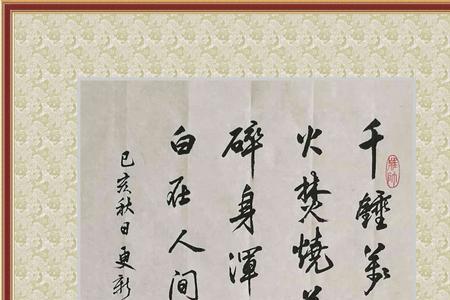 千錘萬
火焚燒
碎身渾
白在人间
己亥秋日更新